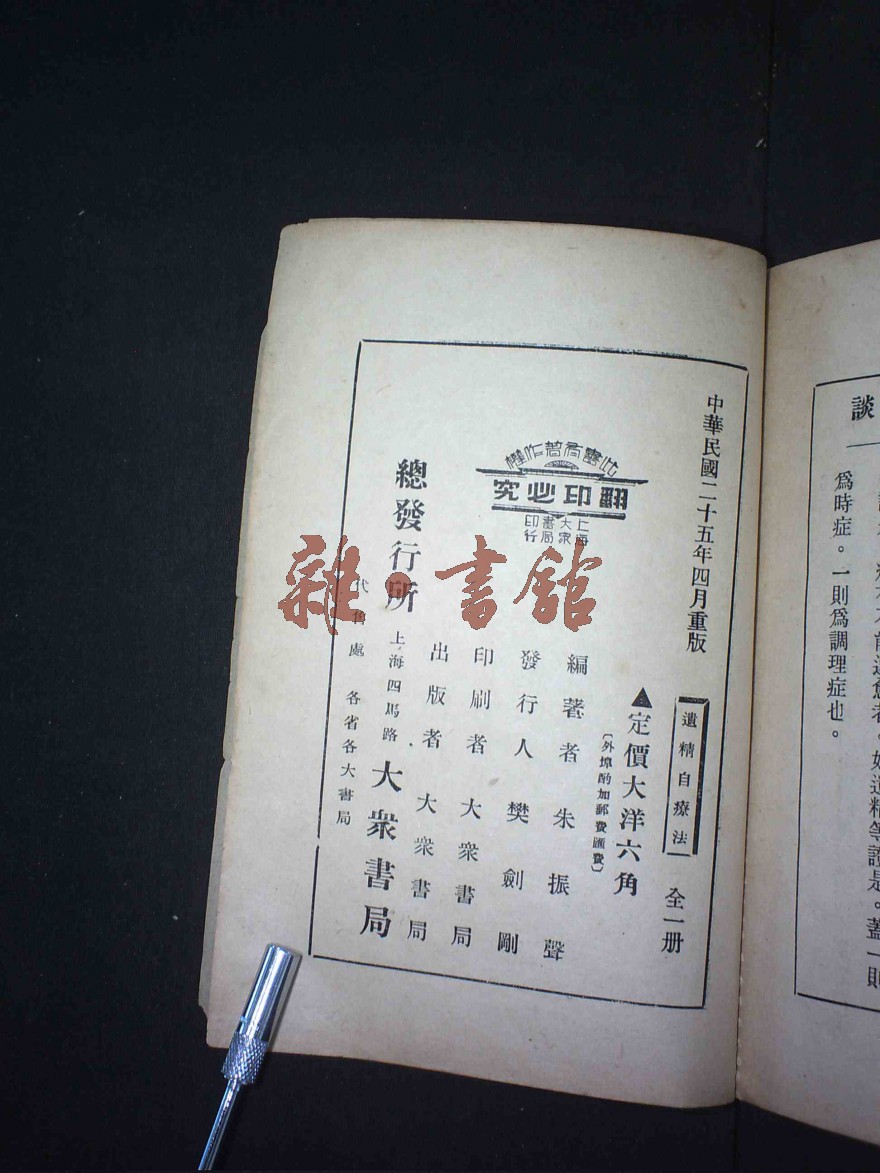 談
爲時症。一則爲調理症也。
中華民國二十五年四月重版
遺精自療法
全一册
▲定價大洋六角
〔外埠酌加郵費匯費〕
編著者 朱振聲
發行人 樊劍剛
印刷者 大衆書局
出版者 大衆書局
總發行所 上海四馬路 大衆書局
代售處 各省各大書局
此書有著作權
翻印必究
上海大衆書局印行
雜·書館